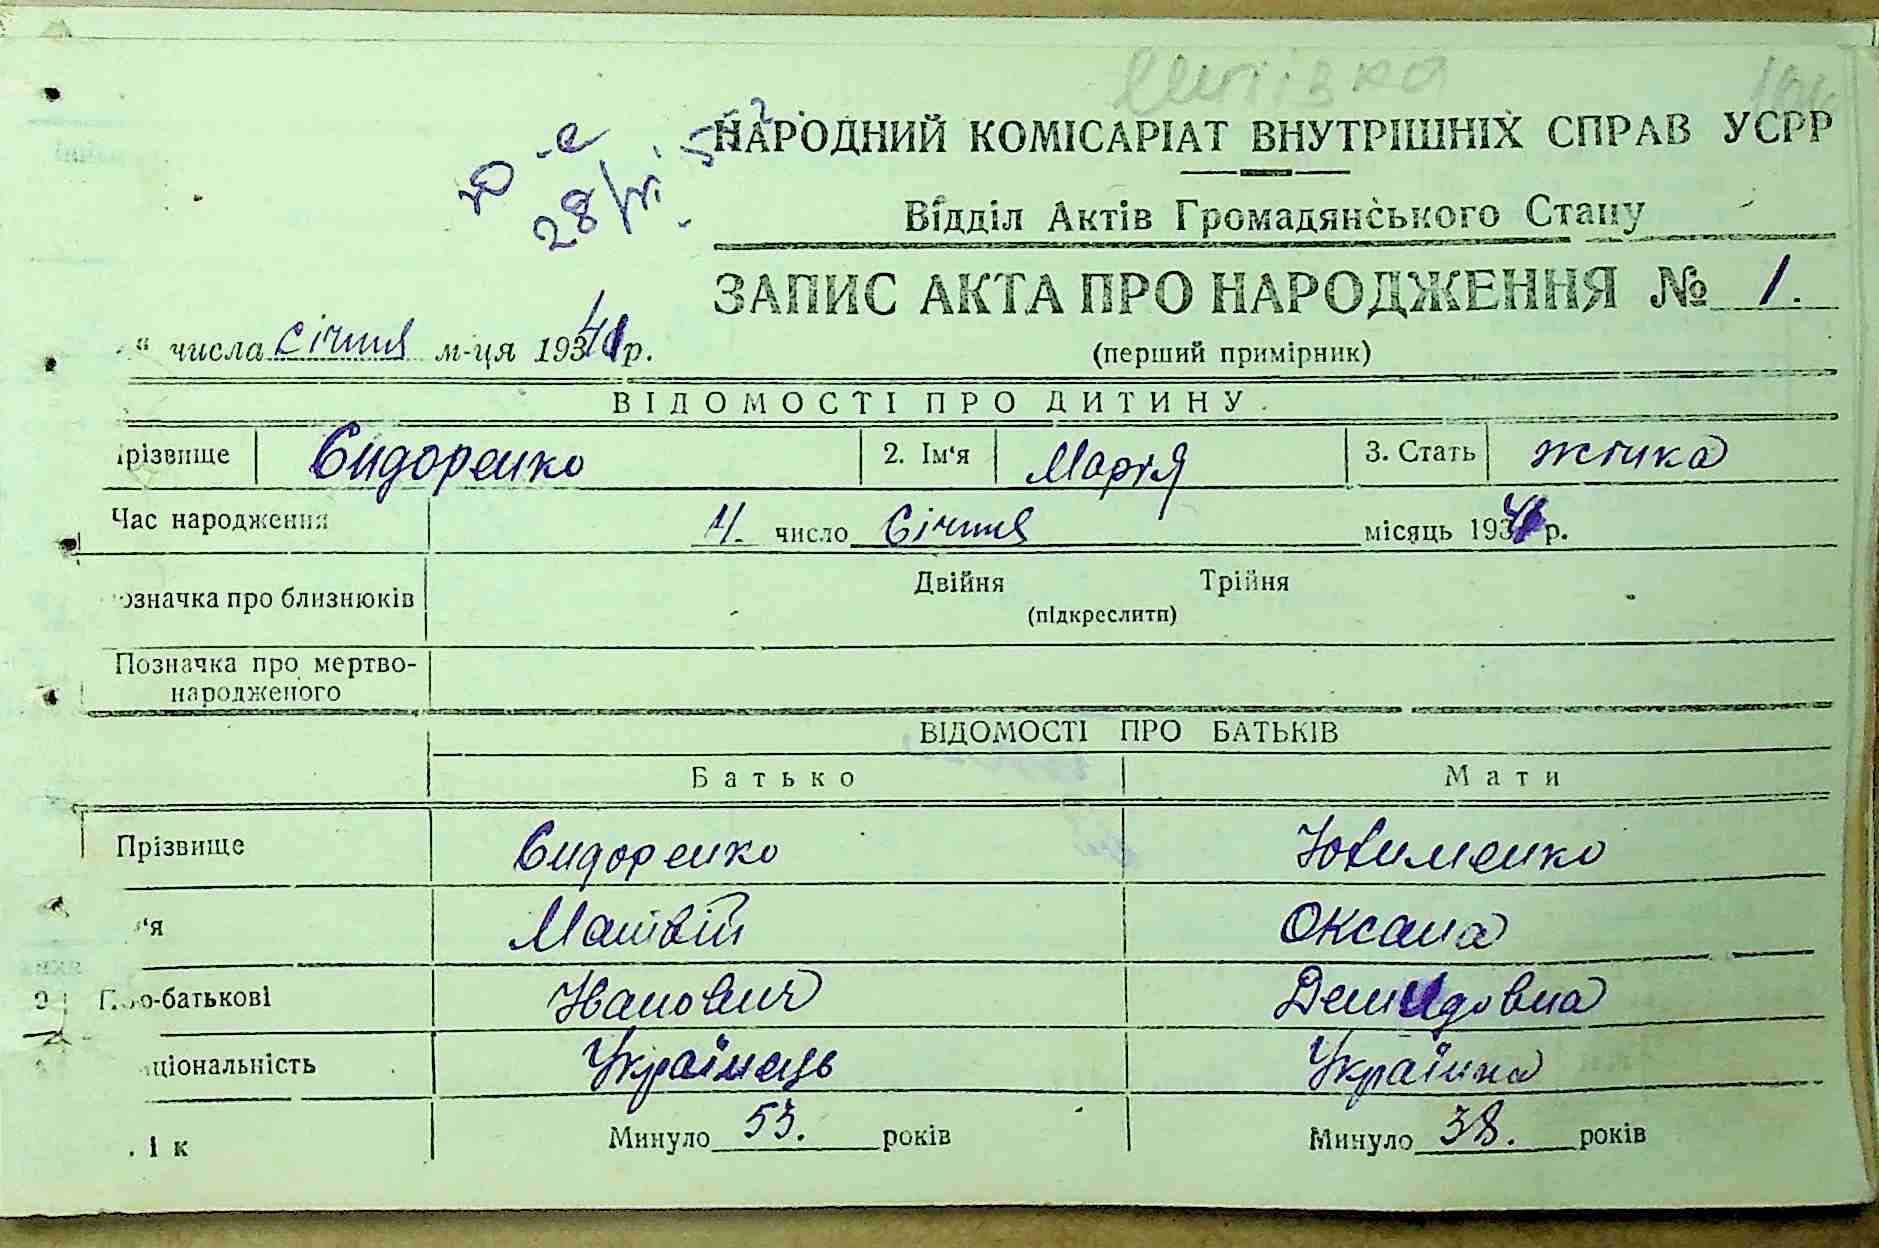 НАРОДНИЙ КОМІСАРІАТ ВНУТРІШНІХ СПРАВ УСРР
ю-е
28/VI 52
Відділ Актів Громадянського Стану
ЗАПИС АКТА ПРО НАРОДЖЕННЯ № 1.
(перший примірник)
“ числа січня м-ця 1941 р.
ВІДОМОСТІ ПРО ДИТИНУ
різвище Сидоренко 2. Ім'я Марія 3. Стать жінка
Час народження 4. число Січня місяць 1941 р.
означка про близнюків Двійня Трійня
(підкреслити)
Позначка про мертво-
народженого
ВІДОМОСТІ ПРО БАТЬКІВ
Батько Мати
Прізвище Сидоренко Юхименко
'я Матвій Оксана
По-батькові Іванович Демидовна
ціональність Українець Українка
ік Минуло 53. років Минуло 38. років